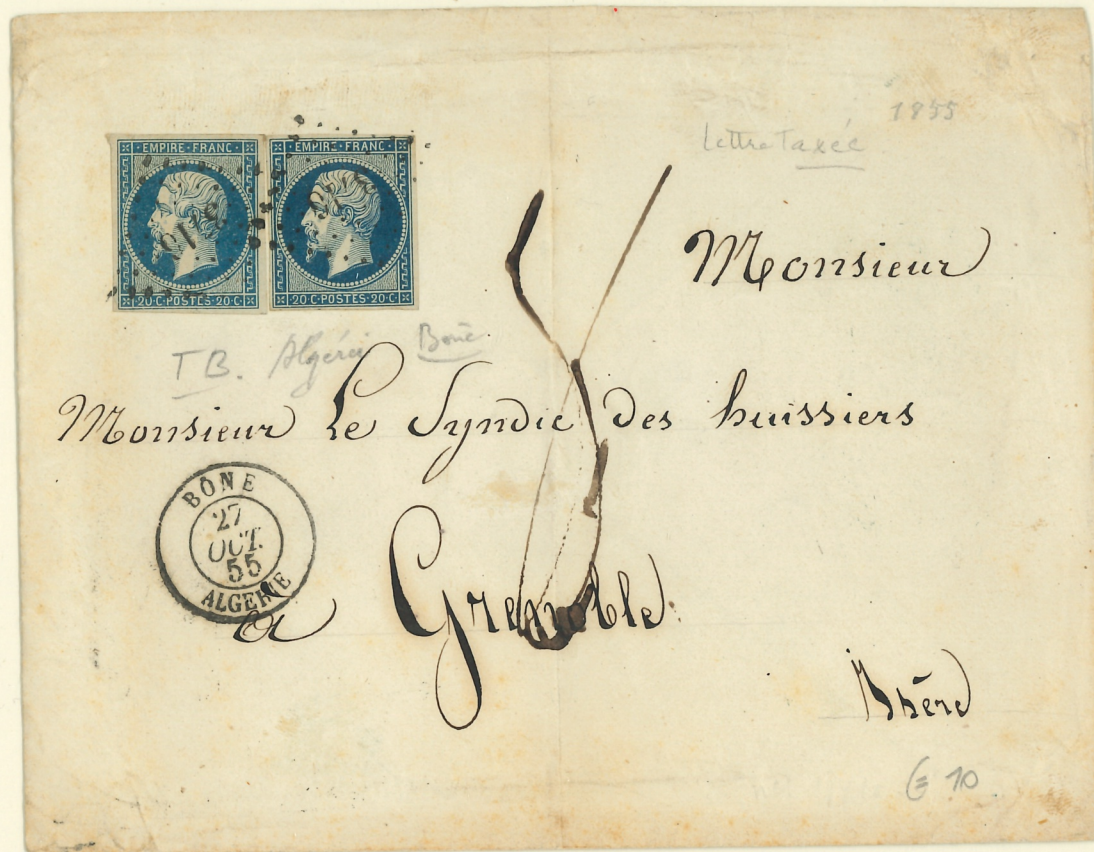 1855
Lettre Taxée
EMPIRE · FRANC ·
20 · C · POSTES · 20 · C ·
EMPIRE · FRANC ·
20 · C · POSTES · 20 · C ·
8
Monsieur
TB. Algérie Bone
Monsieur Le Syndic des huissiers
BÔNE
27
OCT.
55
ALGERIE
a Grenoble
Isère
10